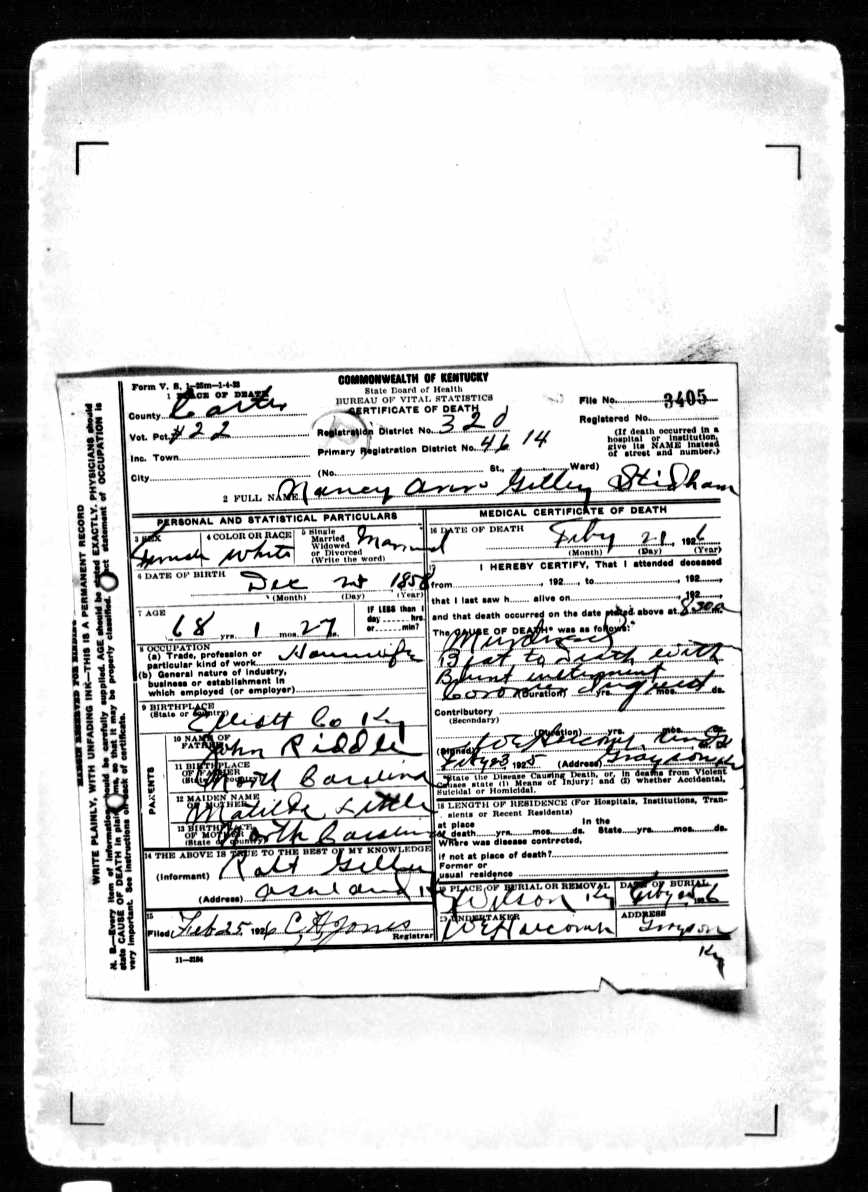 Form V. S. 1-25m-1-4-23
COMMONWEALTH OF KENTUCKY
State Board of Health
BUREAU OF VITAL STATISTICS
CERTIFICATE OF DEATH
1 PLACE OF DEATH
County Carter
Vot. Pct. #22
Inc. Town
City
Registration District No. 320
Primary Registration District No. 4614
(No. St., Ward)
File No. 3405
Registered No.
(If death occurred in a
hospital or institution,
give its NAME instead
of street and number.)
2 FULL NAME Nancy Ann Gilley Stidham
PERSONAL AND STATISTICAL PARTICULARS
3 SEX
Female
4 COLOR OR RACE
White
5 Single
Married
Widowed
or Divorced
(Write the word)
Married
6 DATE OF BIRTH
Dec 1858
(Month) (Day) (Year)
7 AGE
68 yrs. 1 mos. 27 ds.
IF LESS than 1
day hrs.
or min?
8 OCCUPATION
(a) Trade, profession or
particular kind of work Housewife
(b) General nature of industry,
business or establishment in
which employed (or employer)
9 BIRTHPLACE
(State or country)
Elliott Co Ky
PARENTS
10 NAME OF
FATHER
John Riddle
11 BIRTHPLACE
OF FATHER
(State or country)
North Carolina
12 MAIDEN NAME
OF MOTHER
Matilda Little
13 BIRTHPLACE
OF MOTHER
(State or country)
North Carolina
14 THE ABOVE IS TRUE TO THE BEST OF MY KNOWLEDGE
(Informant) Gilley
(Address) Ashland Ky
15
Filed Feb 25, 1926 C H Jones
Registrar
11-3184
MEDICAL CERTIFICATE OF DEATH
16 DATE OF DEATH
Feby 21, 1926
(Month) (Day) (Year)
17 I HEREBY CERTIFY, That I attended deceased
from , 192 , to , 192
that I last saw h alive on , 192
and that death occurred on the date stated above at 8 30 a
The CAUSE OF DEATH* was as follows:
Murdered
Beat to Death with
Blunt instrument
Coroner Inquest
(Duration) yrs. mos. ds.
Contributory
(Secondary)
(Duration) yrs. mos. ds.
(Signed) W E Harcomb
Feby 23, 1925 (Address) Grayson Ky
*State the Disease Causing Death, or, in deaths from Violent
Causes state (1) Means of Injury; and (2) whether Accidental,
Suicidal or Homicidal.
18 LENGTH OF RESIDENCE (For Hospitals, Institutions, Tran-
sients or Recent Residents)
At place
of death yrs. mos. ds.
In the
State yrs. mos. ds.
Where was disease contracted,
if not at place of death?
Former or
usual residence
19 PLACE OF BURIAL OR REMOVAL
Wilson Ky
DATE OF BURIAL
Feby 1926
20 UNDERTAKER
W E Harcomb
ADDRESS
Grayson
Ky
MARGIN RESERVED FOR BINDING
WRITE PLAINLY, WITH UNFADING INK—THIS IS A PERMANENT RECORD
N. B.—Every item of information should be carefully supplied. AGE should be stated EXACTLY. PHYSICIANS should
state CAUSE OF DEATH in plain so that it may be properly classified. statement of OCCUPATION is
very important. See instructions on back of certificate.